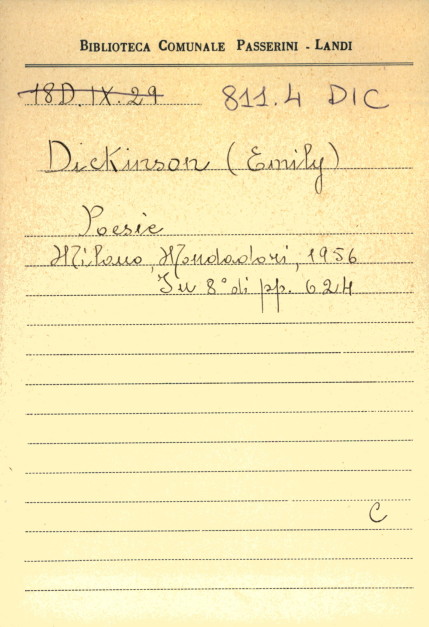 BIBLIOTECA COMUNALE PASSERINI - LANDI
18D.IX.29 811.4 DIC
Dickinson (Emily)
Poesie
Milano, Mondadori, 1956
In 8° di pp. 624
C